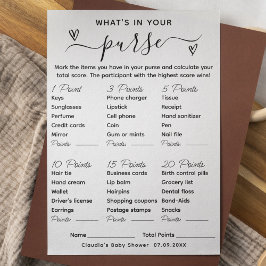 WHAT'S IN YOUR
purse
Mark the items you have in your purse and calculate your
total score. The participant with the highest score wins!
1 Point 3 Points 5 Points
Keys Phone charger Tissue
Sunglasses Lipstick Receipt
Perfume Cell phone Hand sanitizer
Credit cards Coin Pen
Mirror Gum or mints Nail file
Points: Points: Points:
10 Points 15 Points 20 Points
Hair tie Business cards Pill bottle
Hand cream Lip balm Grocery list
Wallet Hairpins Dental floss
Driver's license Shopping coupons Band-Aids
Earrings Postage stamps Snacks
Points: Points: Points:
Name Total Points
Claudia's Baby Shower 07.09.20XX